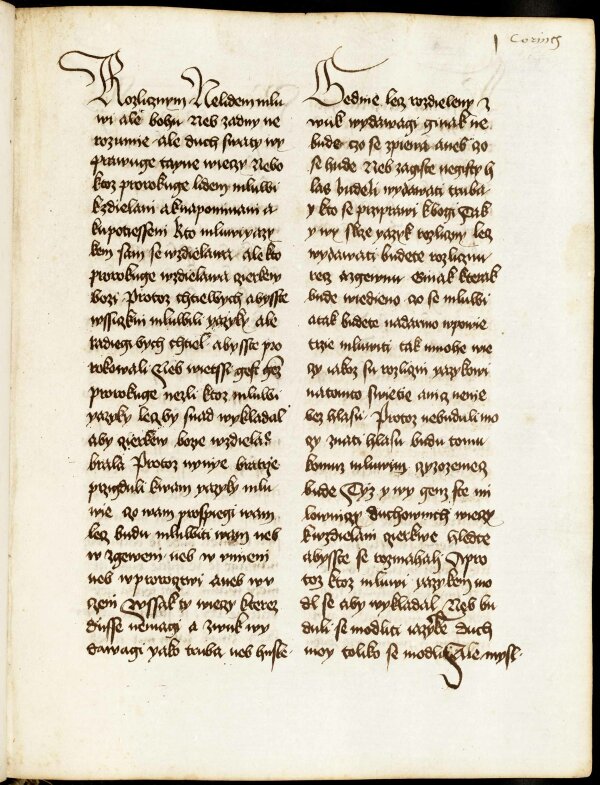 Corint
Rozlicznym Nelidem mlu
wi ale bohu Neb zadny ne
rozumie ale duch swaty wy
prawuge tayne wieczy Nebo
ktoz prorokuge lidem mluwi
kzdielani aknapominani a
kupotiesseni Kto mluwi yazy
kem sam se wzdielawa ale kto
prorokuge wzdielawa czierkew
bozi Protoz chtielbych abysste
wssiczkni mluwili yazyky ale
radiegi bych chtiel abysste pro
rokowali Neb wietssi gest gez
prorokuge nezli ktoz mluwi
yazyky lezby snad wykladal
aby czierkew bozie wzdielas
brala Protoz nynye bratrzie
przigduli kwam yazyky mlu
wie czo wam prospiegi wam
lecz budu mluwiti wam neb
w zgeweni neb w vmieni
neb w prorocztwi aneb w v
czeni Wssak ty wieczy kterez
dusse nemagi a zwuk wy
dawagi yako truba neb husle
Gedine lecz rozdieleny z
wuk wydawagi ginak ne
bude czo se zpiewa aneb czo
se hude Neb zagiste negisty h
las budeli wydawati truba
y kto se prziprawi kbogi Tak
y wy skrze yazyk rozliczny lecz
wydawati budete rozliczmi
recz azgewnu Ginak kterak
bude wiedieno czo se mluwi
atak budete nadarmo wpowie
trzie mluwiti tak mnohe wie
czy yakoz su rozliczni yazykowi
natomto swietie anicz nenie
bez hlasu Protoz nebuduli mo
czy znati hlasu budu tomu
komuz mluwim czyzozemecz
bude Tyz y wy genz ste mi
lowniczy duchownich wieczy
kwzdielani czierkwe hledte
abysste se rozmahali Apro
toz ktoz mluwi yazykem mo
dl se aby wykladal Neb bu
duli se modliti yazyke duch
moy toliko se modli Ale mysl